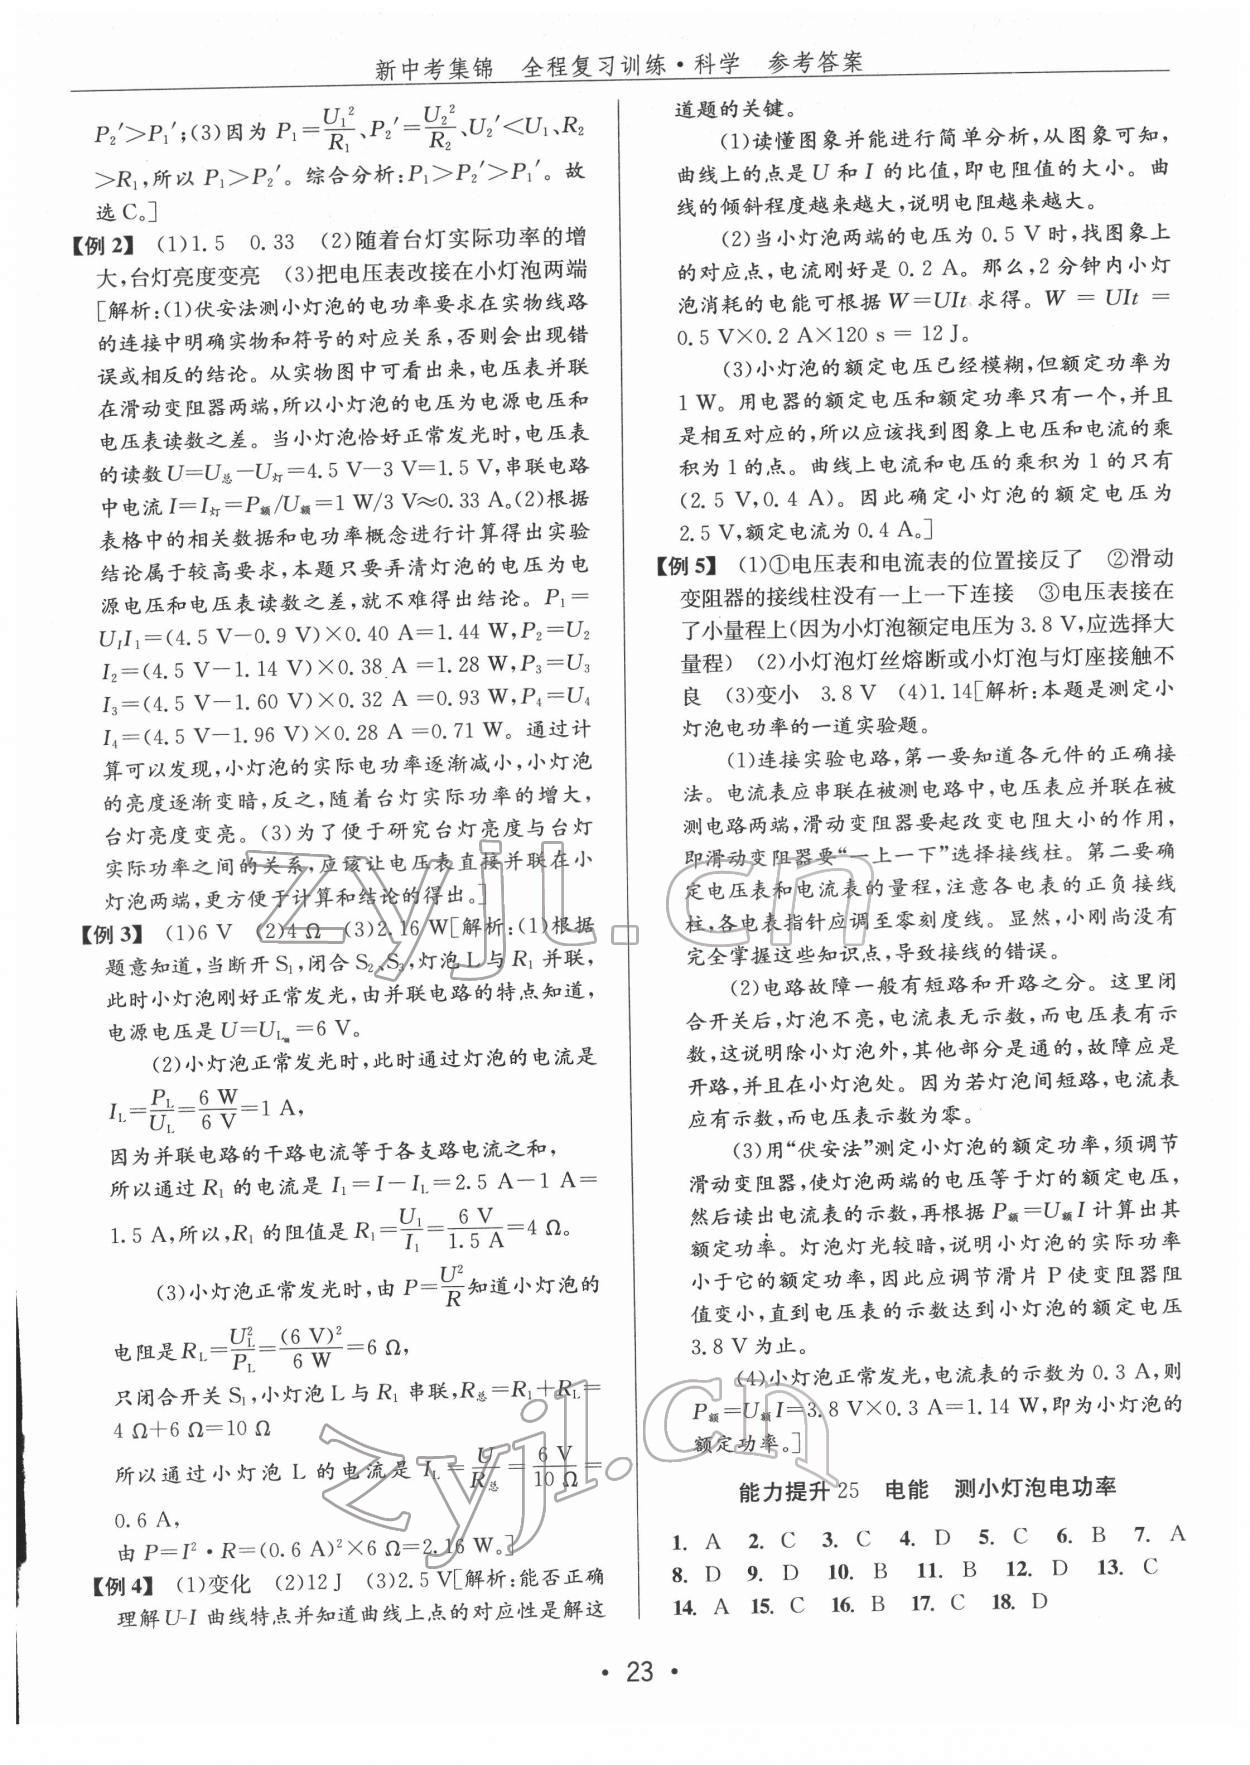 新中考集锦 全程复习训练·科学 参考答案
P₂′>P₁′;(3)因为 P₁=U₁²/R₁、P₂′=U₂²/R₂、U₂′<U₁、R₂
>R₁,所以 P₁>P₂′。综合分析:P₁>P₂′>P₁′。故
选 C。]
【例 2】 (1)1.5 0.33 (2)随着台灯实际功率的增
大,台灯亮度变亮 (3)把电压表改接在小灯泡两端
[解析:(1)伏安法测小灯泡的电功率要求在实物线路
的连接中明确实物和符号的对应关系,否则会出现错
误或相反的结论。从实物图中可看出来,电压表并联
在滑动变阻器两端,所以小灯泡的电压为电源电压和
电压表读数之差。当小灯泡恰好正常发光时,电压表
的读数 U=U总-U灯=4.5 V-3 V=1.5 V,串联电路
中电流 I=I灯=P额/U额=1 W/3 V≈0.33 A。(2)根据
表格中的相关数据和电功率概念进行计算得出实验
结论属于较高要求,本题只要弄清灯泡的电压为电
源电压和电压表读数之差,就不难得出结论。P₁=
U₁I₁=(4.5 V-0.9 V)×0.40 A=1.44 W,P₂=U₂
I₂=(4.5 V-1.14 V)×0.38 A=1.28 W,P₃=U₃
I₃=(4.5 V-1.60 V)×0.32 A=0.93 W,P₄=U₄
I₄=(4.5 V-1.96 V)×0.28 A=0.71 W。通过计
算可以发现,小灯泡的实际电功率逐渐减小,小灯泡
的亮度逐渐变暗,反之,随着台灯实际功率的增大,
台灯亮度变亮。(3)为了便于研究台灯亮度与台灯
实际功率之间的关系,应该让电压表直接并联在小
灯泡两端,更方便于计算和结论的得出。]
【例 3】 (1)6 V (2)4 Ω (3)2.16 W[解析:(1)根据
题意知道,当断开 S₁,闭合 S₂、S₃,灯泡 L 与 R₁ 并联,
此时小灯泡刚好正常发光,由并联电路的特点知道,
电源电压是 U=U_L额=6 V。
(2)小灯泡正常发光时,此时通过灯泡的电流是
I_L=P_L/U_L=6 W/6 V=1 A,
因为并联电路的干路电流等于各支路电流之和,
所以通过 R₁ 的电流是 I₁=I-I_L=2.5 A-1 A=
1.5 A,所以,R₁ 的阻值是 R₁=U₁/I₁=6 V/1.5 A=4 Ω。
(3)小灯泡正常发光时,由 P=U²/R知道小灯泡的
电阻是 R_L=U_L²/P_L=(6 V)²/6 W=6 Ω,
只闭合开关 S₁,小灯泡 L 与 R₁ 串联,R总=R₁+R_L=
4 Ω+6 Ω=10 Ω
所以通过小灯泡 L 的电流是 I_L=U/R总=6 V/10 Ω=
0.6 A,
由 P=I²·R=(0.6 A)²×6 Ω=2.16 W。]
【例 4】 (1)变化 (2)12 J (3)2.5 V[解析:能否正确
理解 U-I 曲线特点并知道曲线上点的对应性是解这
道题的关键。
(1)读懂图象并能进行简单分析,从图象可知,
曲线上的点是 U 和 I 的比值,即电阻值的大小。曲
线的倾斜程度越来越大,说明电阻越来越大。
(2)当小灯泡两端的电压为 0.5 V 时,找图象上
的对应点,电流刚好是 0.2 A。那么,2 分钟内小灯
泡消耗的电能可根据 W=UIt 求得。W = UIt =
0.5 V×0.2 A×120 s = 12 J。
(3)小灯泡的额定电压已经模糊,但额定功率为
1 W。用电器的额定电压和额定功率只有一个,并且
是相互对应的,所以应该找到图象上电压和电流的乘
积为 1 的点。曲线上电流和电压的乘积为 1 的只有
(2.5 V,0.4 A)。因此确定小灯泡的额定电压为
2.5 V,额定电流为 0.4 A。]
【例 5】 (1)①电压表和电流表的位置接反了 ②滑动
变阻器的接线柱没有一上一下连接 ③电压表接在
了小量程上(因为小灯泡额定电压为 3.8 V,应选择大
量程) (2)小灯泡灯丝熔断或小灯泡与灯座接触不
良 (3)变小 3.8 V (4)1.14[解析:本题是测定小
灯泡电功率的一道实验题。
(1)连接实验电路,第一要知道各元件的正确接
法。电流表应串联在被测电路中,电压表应并联在被
测电路两端,滑动变阻器要起改变电阻大小的作用,
即滑动变阻器要“一上一下”选择接线柱。第二要确
定电压表和电流表的量程,注意各电表的正负接线
柱,各电表指针应调至零刻度线。显然,小刚尚没有
完全掌握这些知识点,导致接线的错误。
(2)电路故障一般有短路和开路之分。这里闭
合开关后,灯泡不亮,电流表无示数,而电压表有示
数,这说明除小灯泡外,其他部分是通的,故障应是
开路,并且在小灯泡处。因为若灯泡间短路,电流表
应有示数,而电压表示数为零。
(3)用“伏安法”测定小灯泡的额定功率,须调节
滑动变阻器,使灯泡两端的电压等于灯的额定电压,
然后读出电流表的示数,再根据 P额=U额I 计算出其
额定功率。灯泡灯光较暗,说明小灯泡的实际功率
小于它的额定功率,因此应调节滑片 P 使变阻器阻
值变小,直到电压表的示数达到小灯泡的额定电压
3.8 V 为止。
(4)小灯泡正常发光,电流表的示数为 0.3 A,则
P额=U额I=3.8 V×0.3 A=1.14 W,即为小灯泡的
额定功率。]
能力提升 25 电能 测小灯泡电功率
1. A 2. C 3. C 4. D 5. C 6. B 7. A
8. D 9. D 10. B 11. B 12. D 13. C
14. A 15. C 16. B 17. C 18. D
· 23 ·
zyjl.cn
zyjl.cn